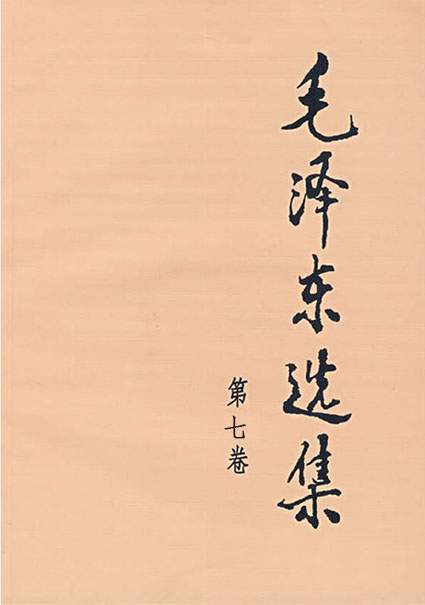 毛泽东选集
第七卷